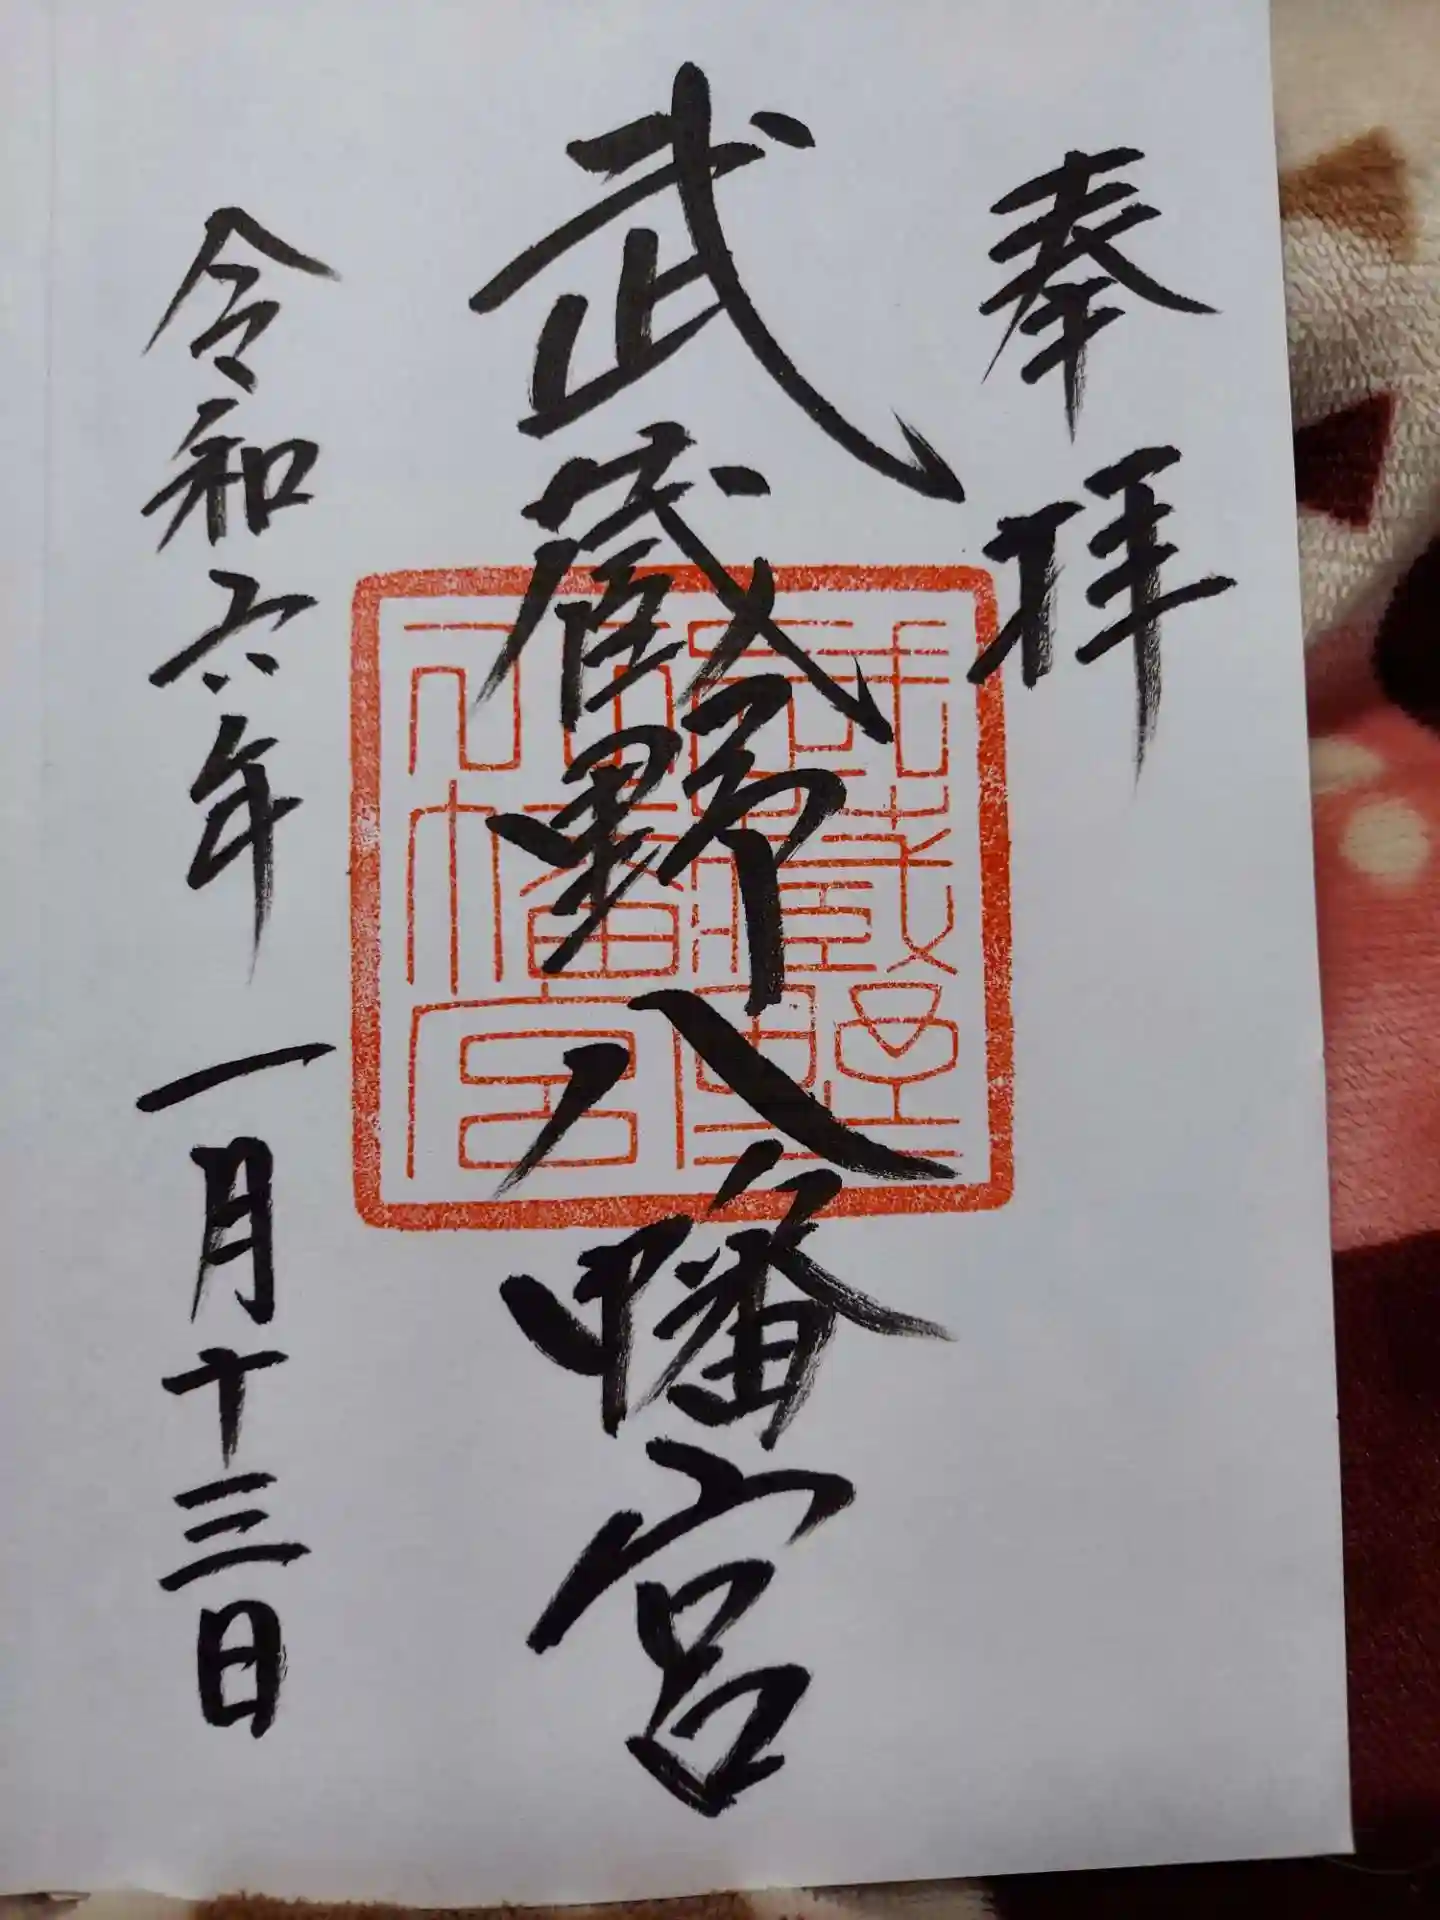 奉拝
武蔵野八幡宮
武蔵野八幡宮
令和六年 一月十三日